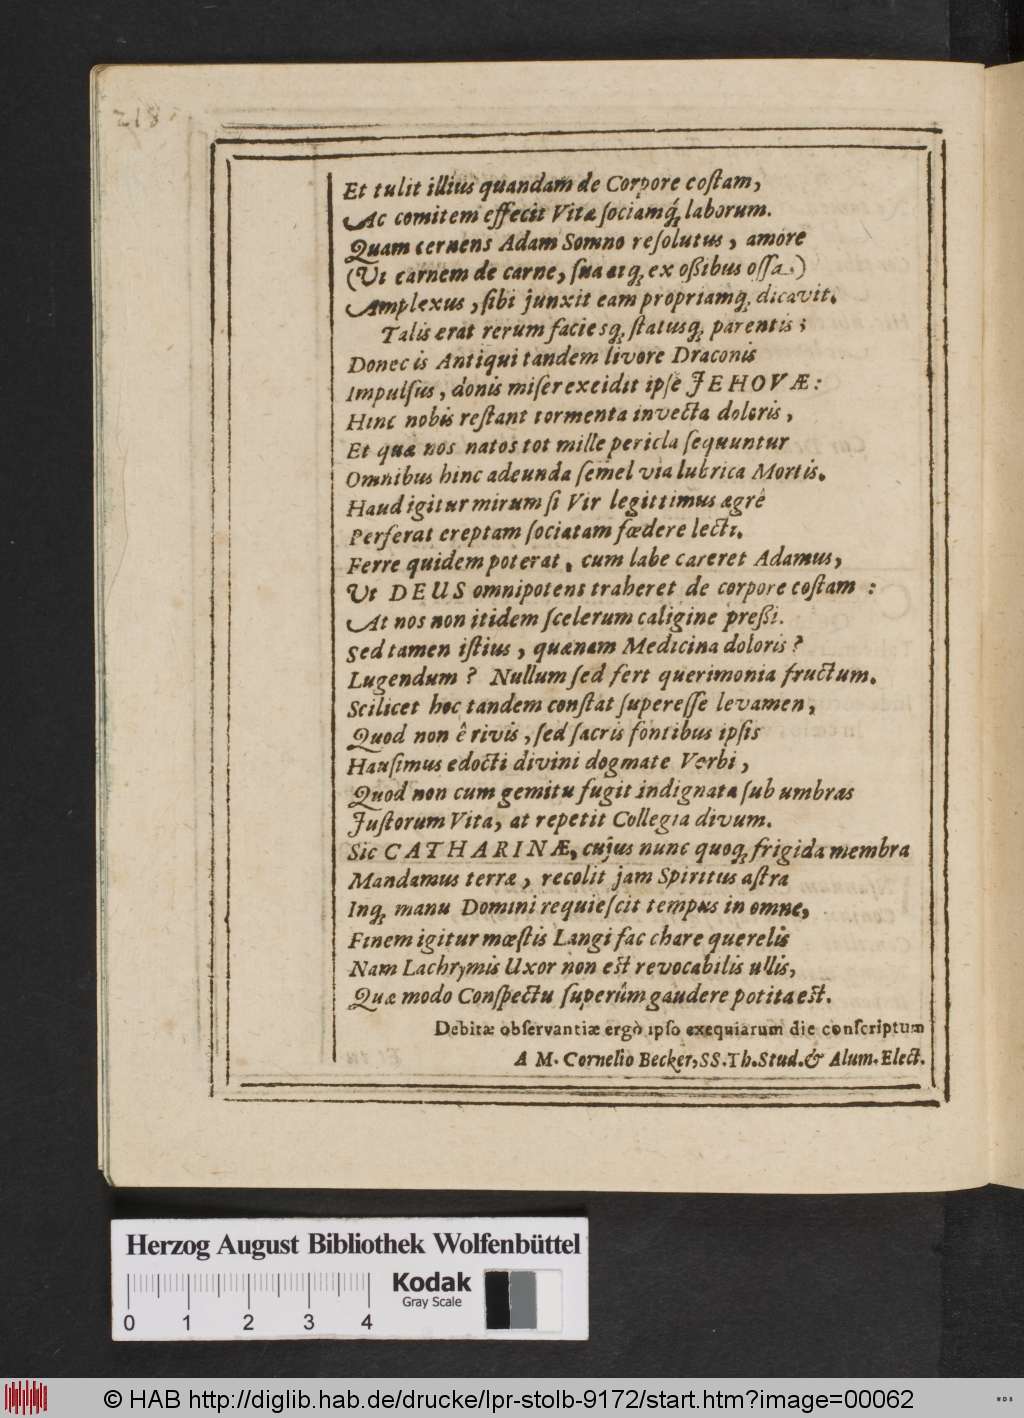 218
Et tulit illius quandam de Corpore coſtam,
Ac comitem effecit Vitæ ſociamq́; laborum.
Quam cernens Adam Somno reſolutus, amore
(Ut carnem de carne, ſua atq; ex oßibus oſſa.)
Amplexus, ſibi junxit eam propriamq; dicavit.
Talis erat rerum faciesq; ſtatusq; parentis;
Donec is Antiqui tandem livore Draconis
Impulſus, donis miſer exeidit ipſe JEHOVÆ:
Hinc nobis reſtant tormenta invecta doloris,
Et quæ nos natos tot mille pericla ſequuntur
Omnibus hinc adeunda ſemel via lubrica Mortis.
Haud igitur mirum ſi Vir legittimus ægrè
Perferat ereptam ſociatam fœdere lecti.
Ferre quidem poterat, cum labe careret Adamus,
Ut DEUS omnipotens traheret de corpore coſtam:
At nos non itidem ſcelerum caligine preßi.
Sed tamen iſtius, quænam Medicina doloris?
Lugendum? Nullum ſed fert querimonia fructum.
Scilicet hoc tandem conſtat ſupereſſe levamen,
Quod non ê rivis, ſed ſacris fontibus ipſis
Hauſimus edocti divini dogmate Verbi,
Quod non cum gemitu fugit indignata ſub umbras
Juſtorum Vita, at repetit Collegia divum.
Sic CATHARINÆ, cujus nunc quoq; frigida membra
Mandamus terræ, recolit jam Spiritus aſtra
Inq; manu Domini requieſcit tempus in omne,
Finem igitur mœſtis Langi fac chare querelis
Nam Lachrymis Uxor non eſt revocabilis ullis,
Quæ modo Conſpectu ſuperûm gaudere potita eſt.
Debitæ obſervantiæ ergò ipſo exequiarum die conſcriptum
A M. Cornelio Becker, SS. Th. Stud. & Alum. Elect.
Herzog August Bibliothek Wolfenbüttel
Kodak
Gray Scale
0 1 2 3 4
© HAB http://diglib.hab.de/drucke/lpr-stolb-9172/start.htm?image=00062